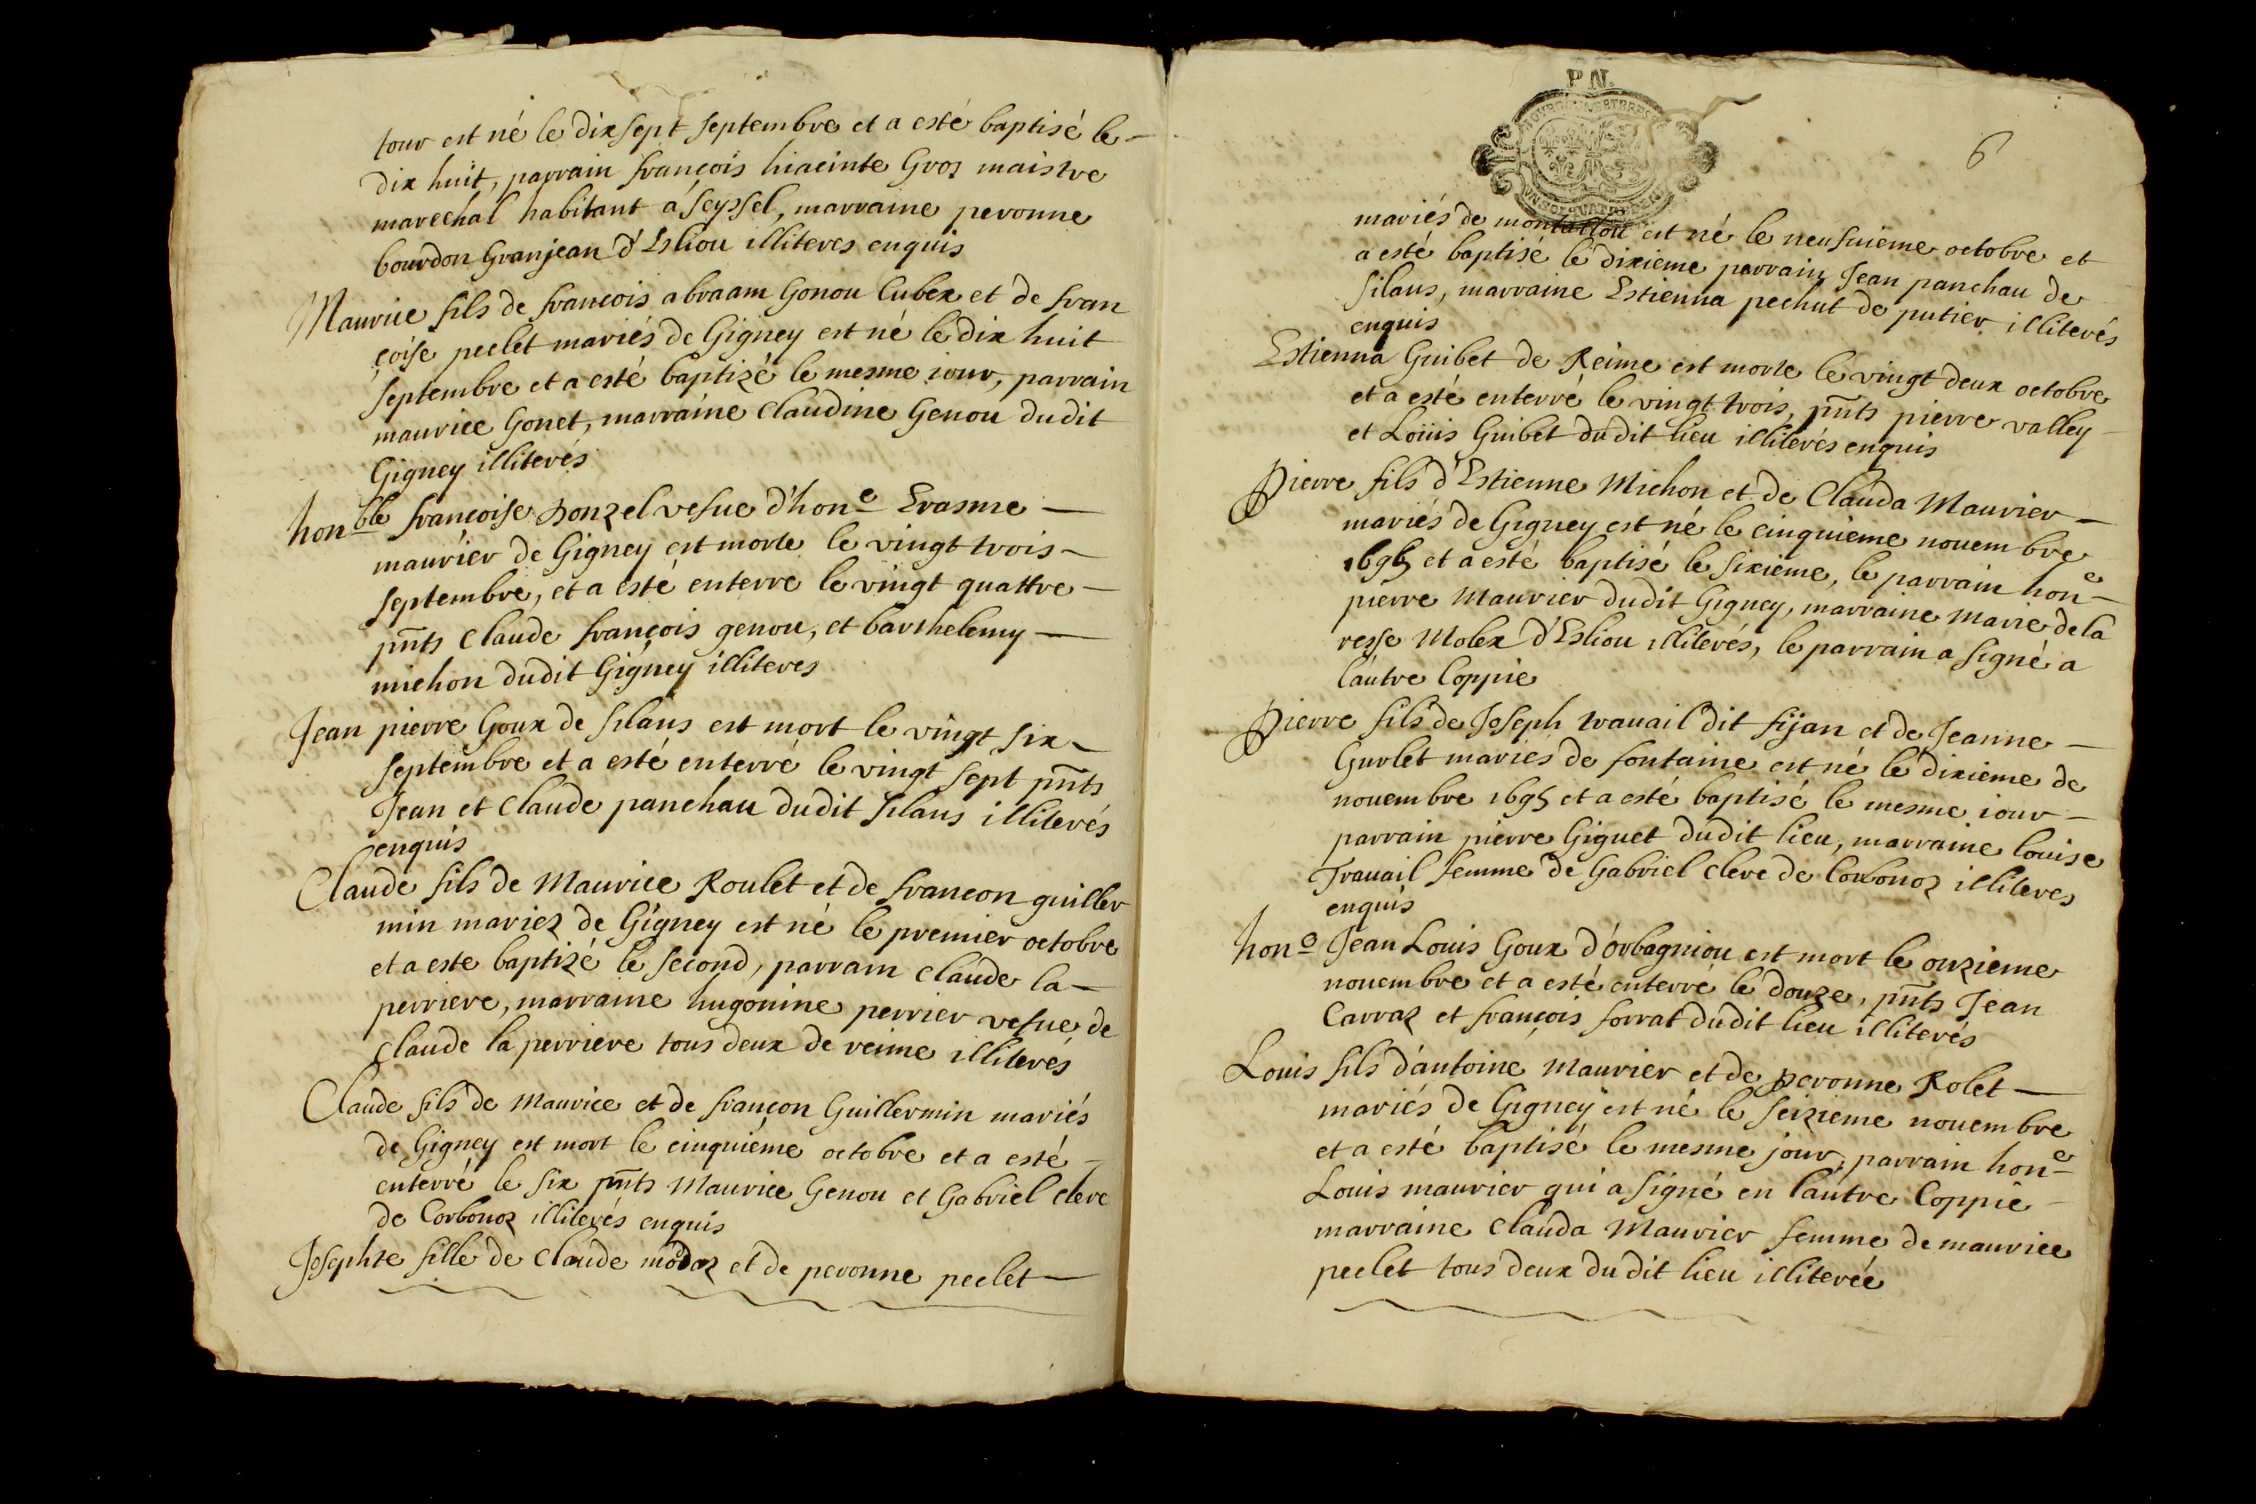 tour est né le dix sept septembre et a esté baptisé le
dix huit, parrain françois hiacinte Gros maistre
marechal habitant a seyssel, marraine peronne
bourdon Granjean d'Esliou illiteres enquis
Maurice fils de françois abraam Gonou Cubex et de fran
çoise peclet mariés de Gigney est né le dix huit
septembre et a esté baptizé le mesme iour, parrain
maurice Gonet, marraine Claudine Genou dudit
Gigney illiterés
hon^ble françoise Donzel vefue d'hon^e Erasme
maurier de Gigney est morte le vingt trois
septembre, et a esté enterre le vingt quattre
pñts Claude françois genou, et barthelemy
michon dudit Gigney illiteres
Jean pierre Goux de silans est mort le vingt six
septembre et a esté enterré le vingt sept pñts
Jean et Claude panchau dudit silans illiterés
enquis
Claude fils de Maurice Roulet et de françon guiller
min mariez de Gigney est né le premier octobre
et a este baptizé le second, parrain Claude la
perriere, marraine hugonine perrier vefue de
Claude la perriere tous deux de reime illiterés
Claude fils de Maurice et de françon Guillermin mariés
de Gigney est mort le cinquiéme octobre et a esté
enterré le six pñts Maurice Genou et Gabriel clerc
de Corbonoz illiterés enquis
Josephte fille de Claude modaz et de peronne peclet
P.N.
6
mariés de est né le neufuieme octobre et
a esté baptisé le dixieme parrain Jean panchau de
silans, marraine Estienna pechut de putier illiterés
enquis
Estienna Guibet de Reime est morte le vingt deux octobre
et a esté enterré le vingt trois, pñts pierre valley
et Loüis Guibet dudit lieu illiterés enquis
Pierre fils d'Estienne Michon et de Clauda Maurier
mariés de Gigney est né le cinquieme nouembre
1695 et a esté baptisé le sixieme, le parrain hon^e
pierre Maurier dudit Gigney, marraine Marie dela
resse Molex d'Esliou illiterés, le parrain a signé a
l'autre Coppie
Pierre fils de Joseph trauail dit fijan et de Jeanne
Gurlet maries de fontaine est né le dixieme de
nouembre 1695 et a esté baptisé le mesme iour
parrain pierre Giguet dudit lieu, marraine louise
Trauail femme de Gabriel clerc de Corbonoz illiteres
enquis
hon^e Jean Louis Goux d'orbagniou est mort le onzieme
nouembre et a esté enterré le douze, pñts Jean
Carraz et françois forrat dudit lieu illiterés
Louis fils d'antoine Maurier et de peronne Rolet
mariés de Gigney est né le seizieme nouembre
et a esté baptisé le mesme jour, parrain hon^e
Louis maurier qui a signé en l'autre Coppie
marraine Clauda Maurier femme de maurice
peclet tous deux dudit lieu illiterée